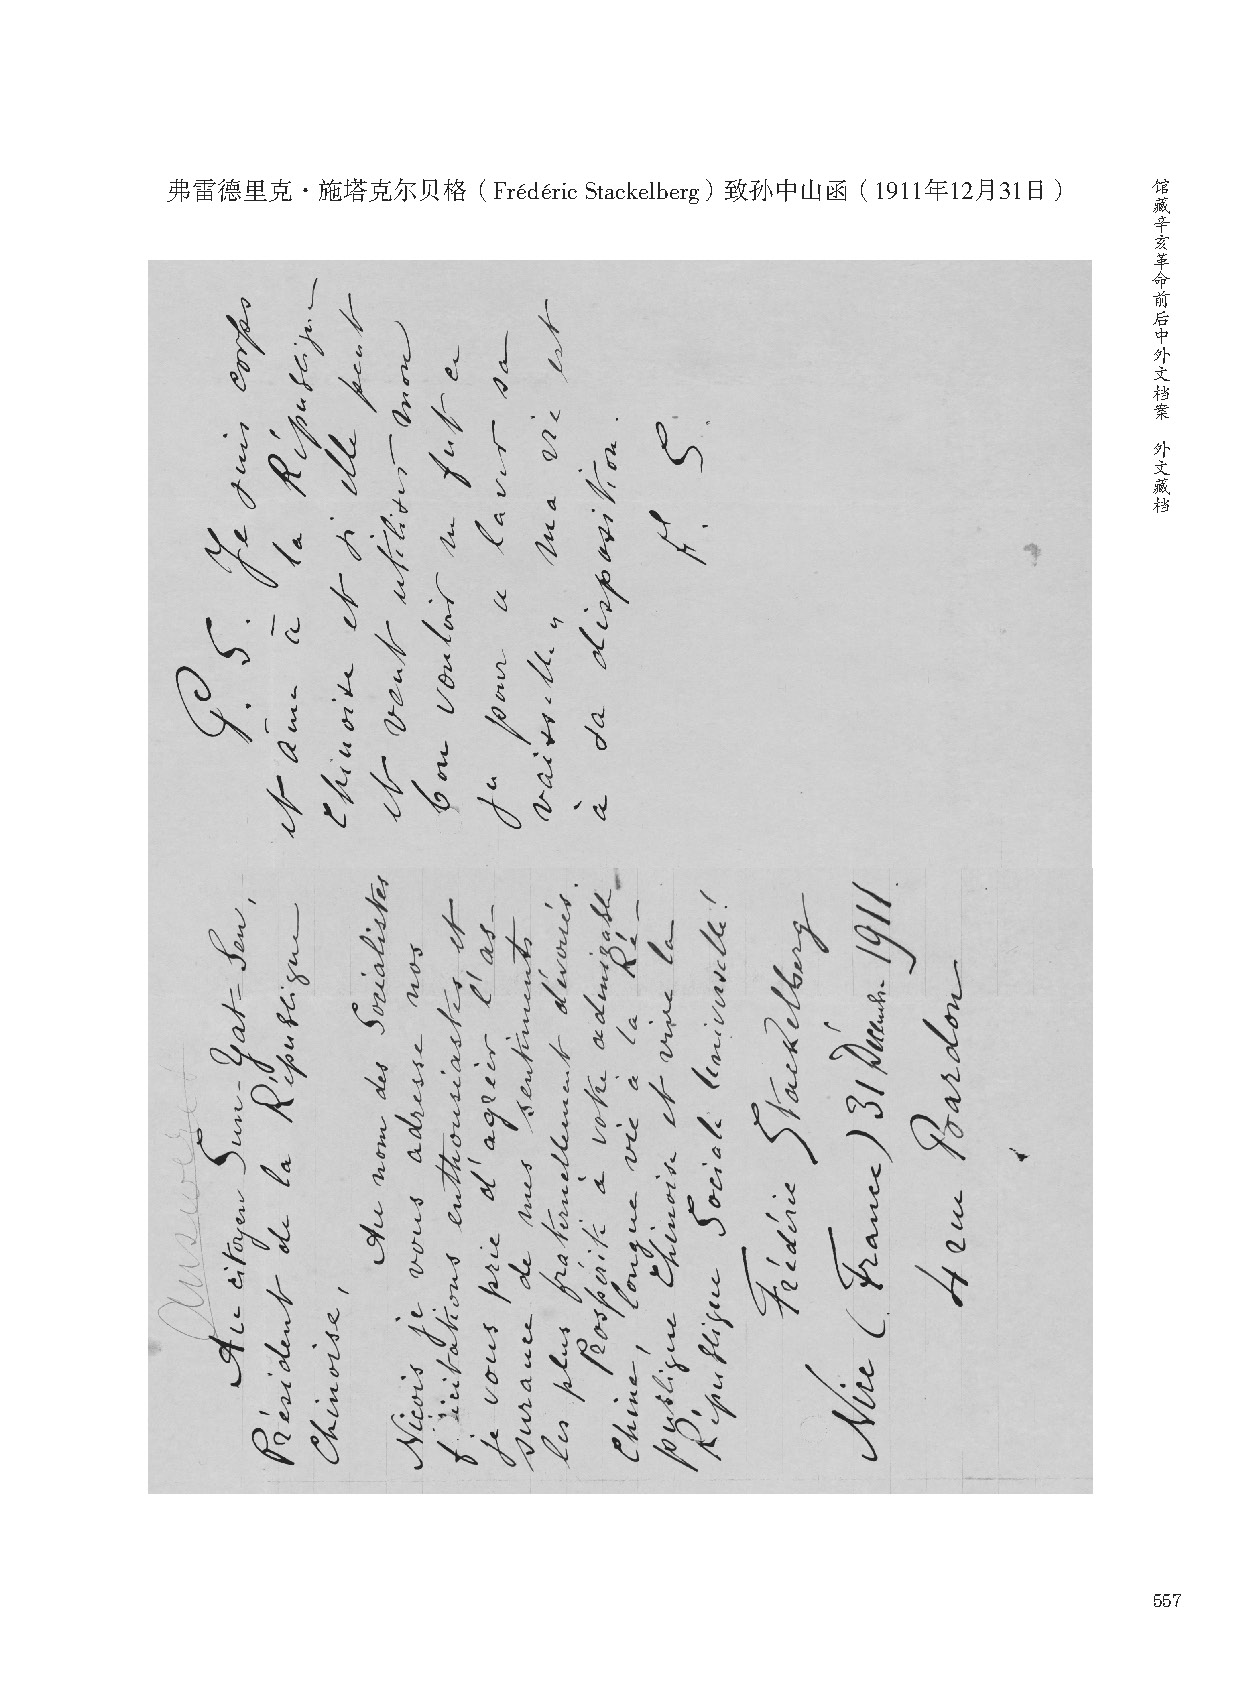 弗雷德里克·施塔克尔贝格（Frédéric Stackelberg）致孙中山函（1911年12月31日）
馆藏辛亥革命前后中外文档案 外文藏档
Answered
Au citoyen Sun-Yat-Sen,
Président de la République
Chinoise,
Au nom des Socialistes
Niçois je vous adresse nos
félicitations enthousiastes et
je vous prie d'agréer l'as-
surance de mes sentiments
les plus fraternellement dévoués.
Prospérité à votre admirable
Chine, longue vie à la Ré-
publique Chinoise et vive la
République Sociale Universelle!
Frédéric Stackelberg
Nice (France) 31 Décembre 1911.
4 rue Bardon
P. S. Je suis corps
et âme à la République
Chinoise et si elle peut
et veut utiliser mon
bon vouloir ne fut ce
que pour " laver sa
vaisselle " ma vie est
à sa disposition.
F. S.
557